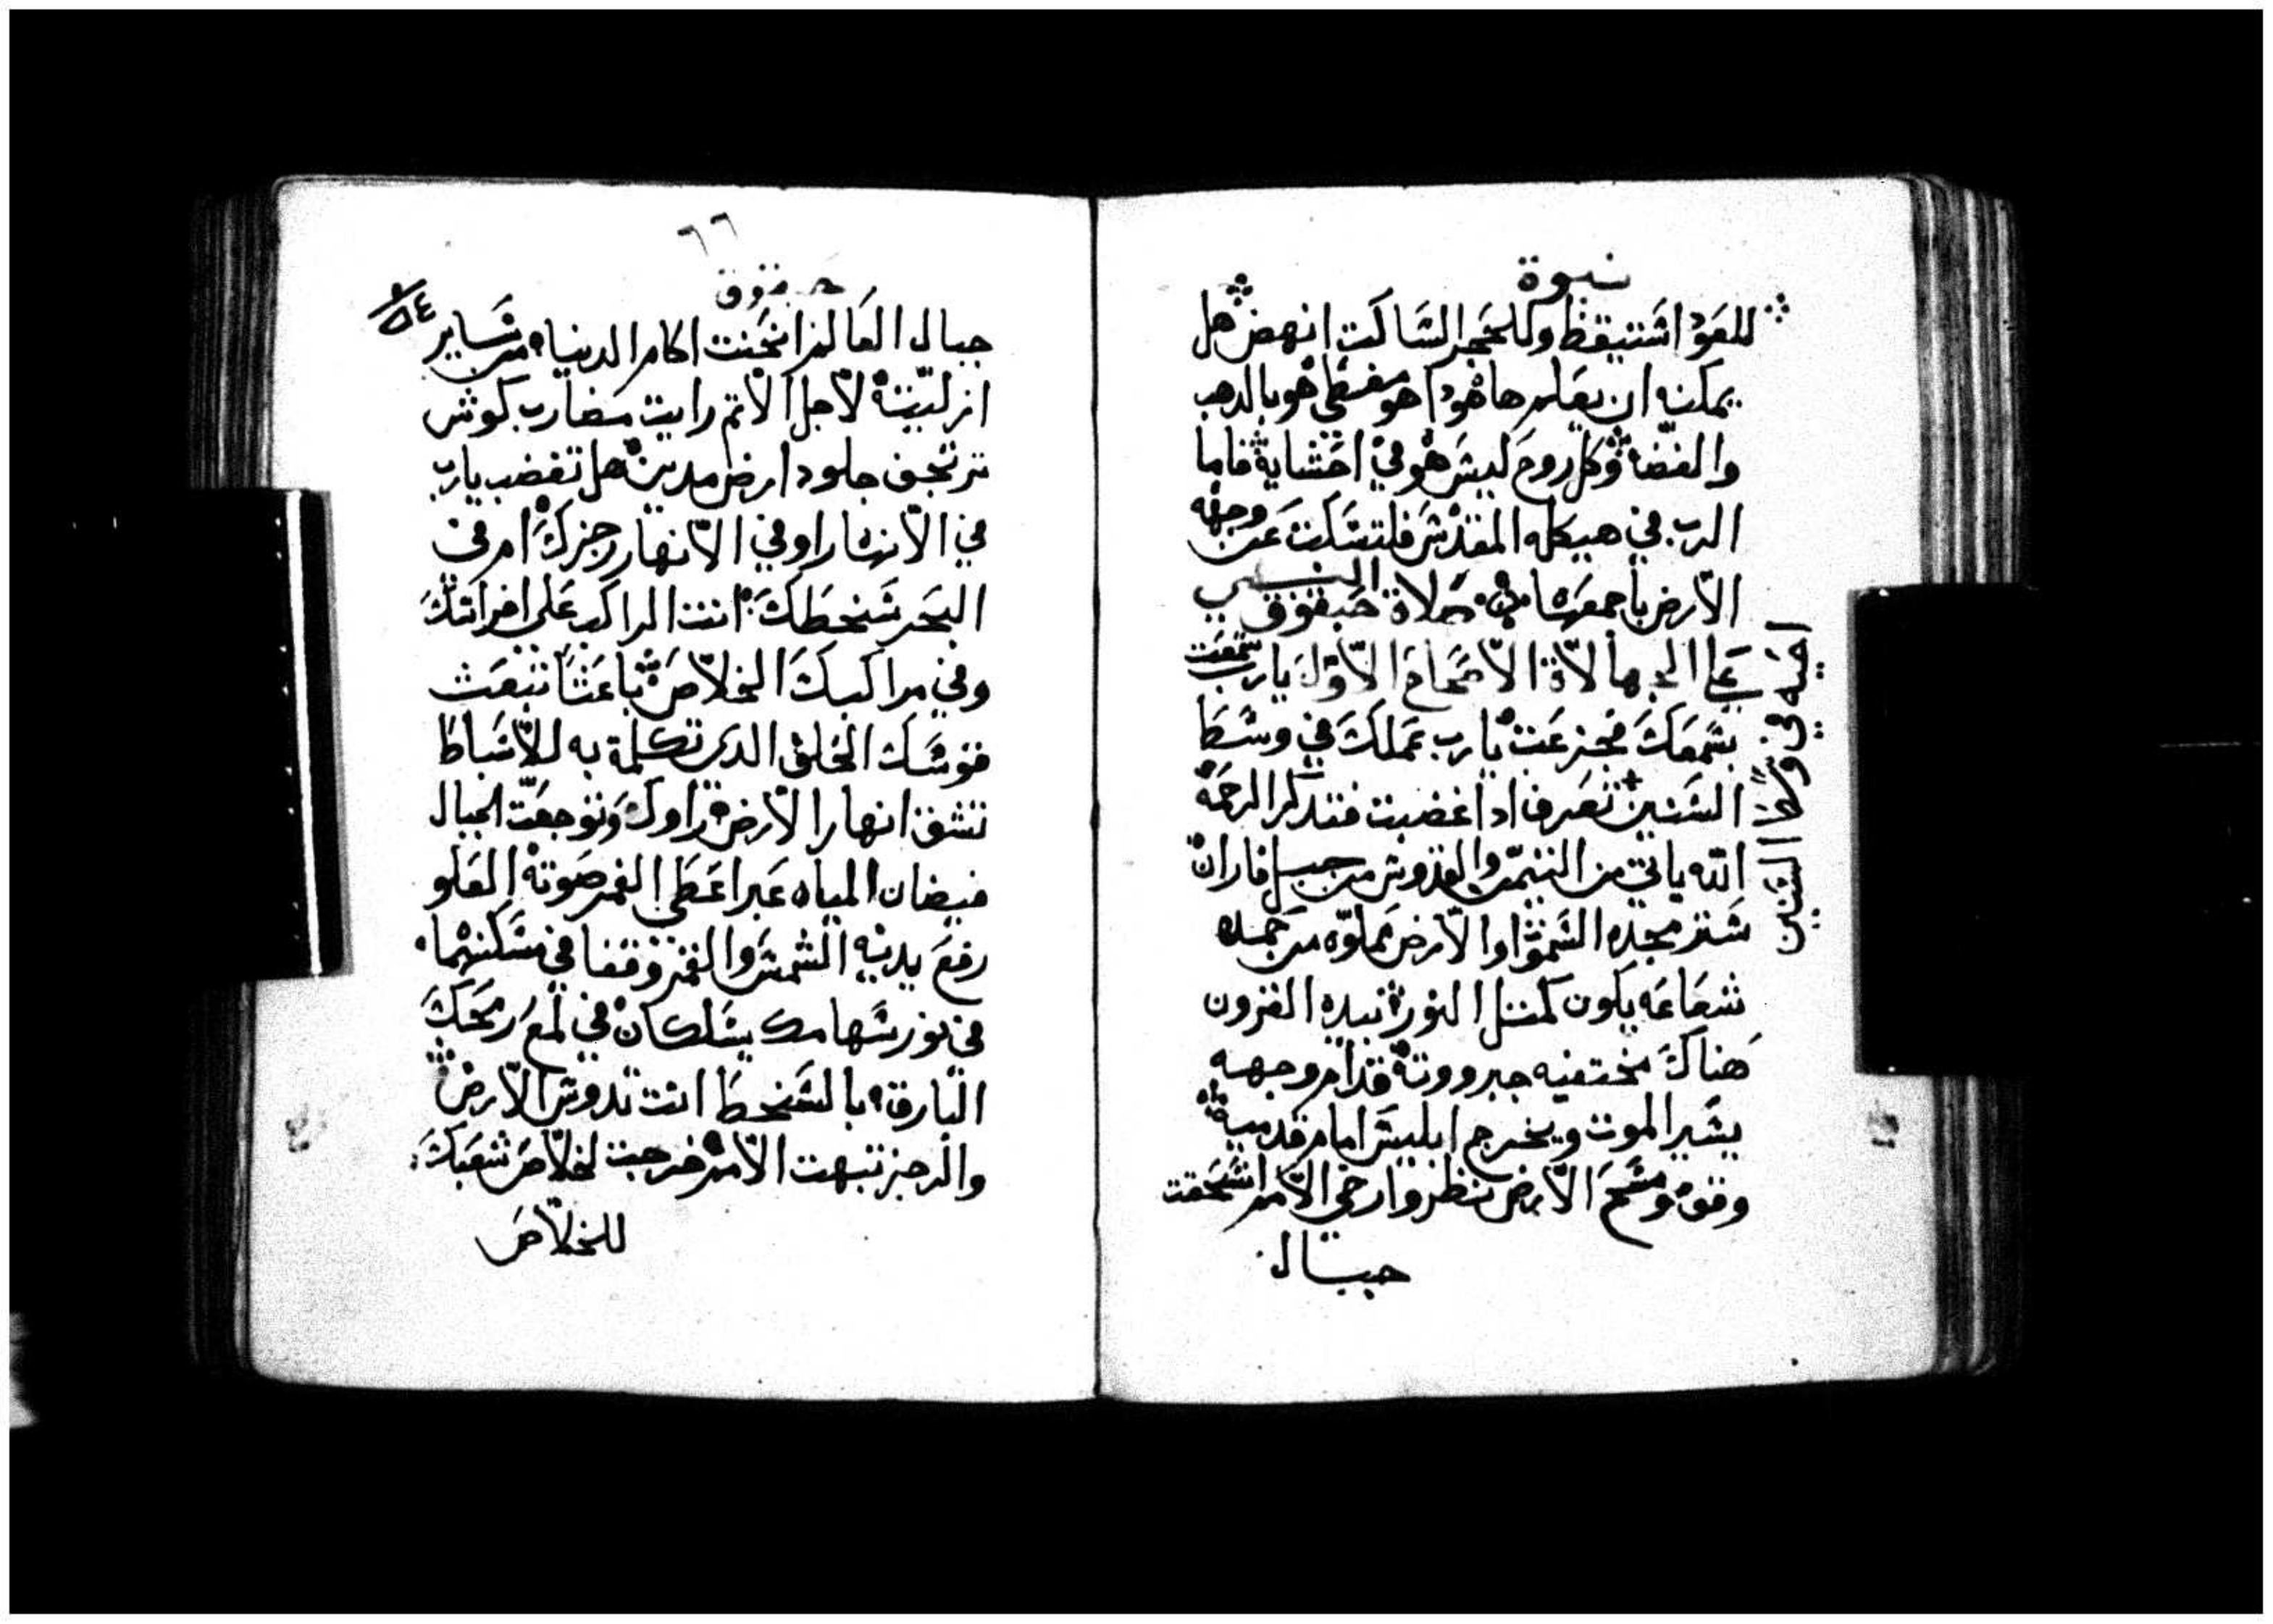 نبوة
للعود اشتيقظ وللحجر الشاكت انهض هل
يمكنه ان يعلم ها هودا هو مغطي هو بالدهب
والفضه وكل روح ليش هو في احشايه فاما
الرب في هيكله المقدش فلتشكت عن وجهه
الارض باجمعها صلاة حبقوق النبي
علي الجهالاة الاصحاح الاول يارب شمعت
بشمعك فجزعت يارب عملك في وشط
الشنين تعرف ادا غضبت فتدكر الرحمه
الله ياتي من التيمن والقدوش من جبل فاران
شتر مجده الشموات والارض مملوه من حمده
شعاعه يكون كمثل النور بيده القرون
هناك مختفيه جبرووته قدام وجهه
يشير الموت ويخرج ابليش امام قدميه
وقف ومشح الارض نظر وارخي الامم انشحقت
جبال
احييه في وشط الشنين
٦٦
حبقوق
جبال العالم انحنت اكام الدنيا من شاير
ازليته لاجل الاثم رايت مضارب كوش
ترتجف جلود ارض مدين هل تغضب يارب
في الانهار او في الانهار رجزك ام في
البحر شخطك انت الراكب علي افراشك
وفي مراكبك الخلاص باعثا تبعث
قوشك الحلف الدي تكلمة به للاشباط
تشق انهار الارض راوك وتوجعت الجبال
فيضان المياه عبر اعطي الغمر صوته العلو
رفع يديه الشمش والقمر وقفا في مشكنهما
في نور شهامك يشلكان في لمع رمحك
البارق بالشخط انت تدوش الارض
والرجز تبهت الامم خرجت لخلاص شعبك
للخلاص